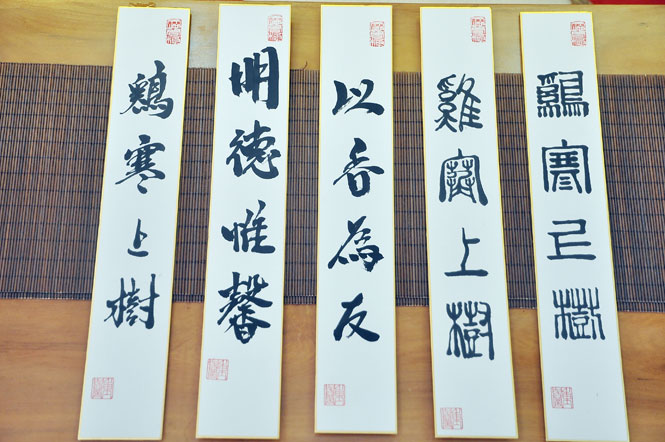 鷄寒上樹
雞寒上樹
以香為友
明德惟馨
鷄寒上樹